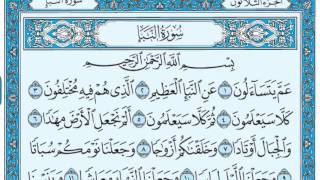 سورة النبإ الجزء الثلاثون
سورة النبإ
بسم الله الرحمن الرحيم
عم يتساءلون ١ عن النبإ العظيم ٢ الذي هم فيه مختلفون ٣
كلا سيعلمون ٤ ثم كلا سيعلمون ٥ ألم نجعل الأرض مهادا ٦
والجبال أوتادا ٧ وخلقناكم أزواجا ٨ وجعلنا نومكم سباتا
٩ وجعلنا